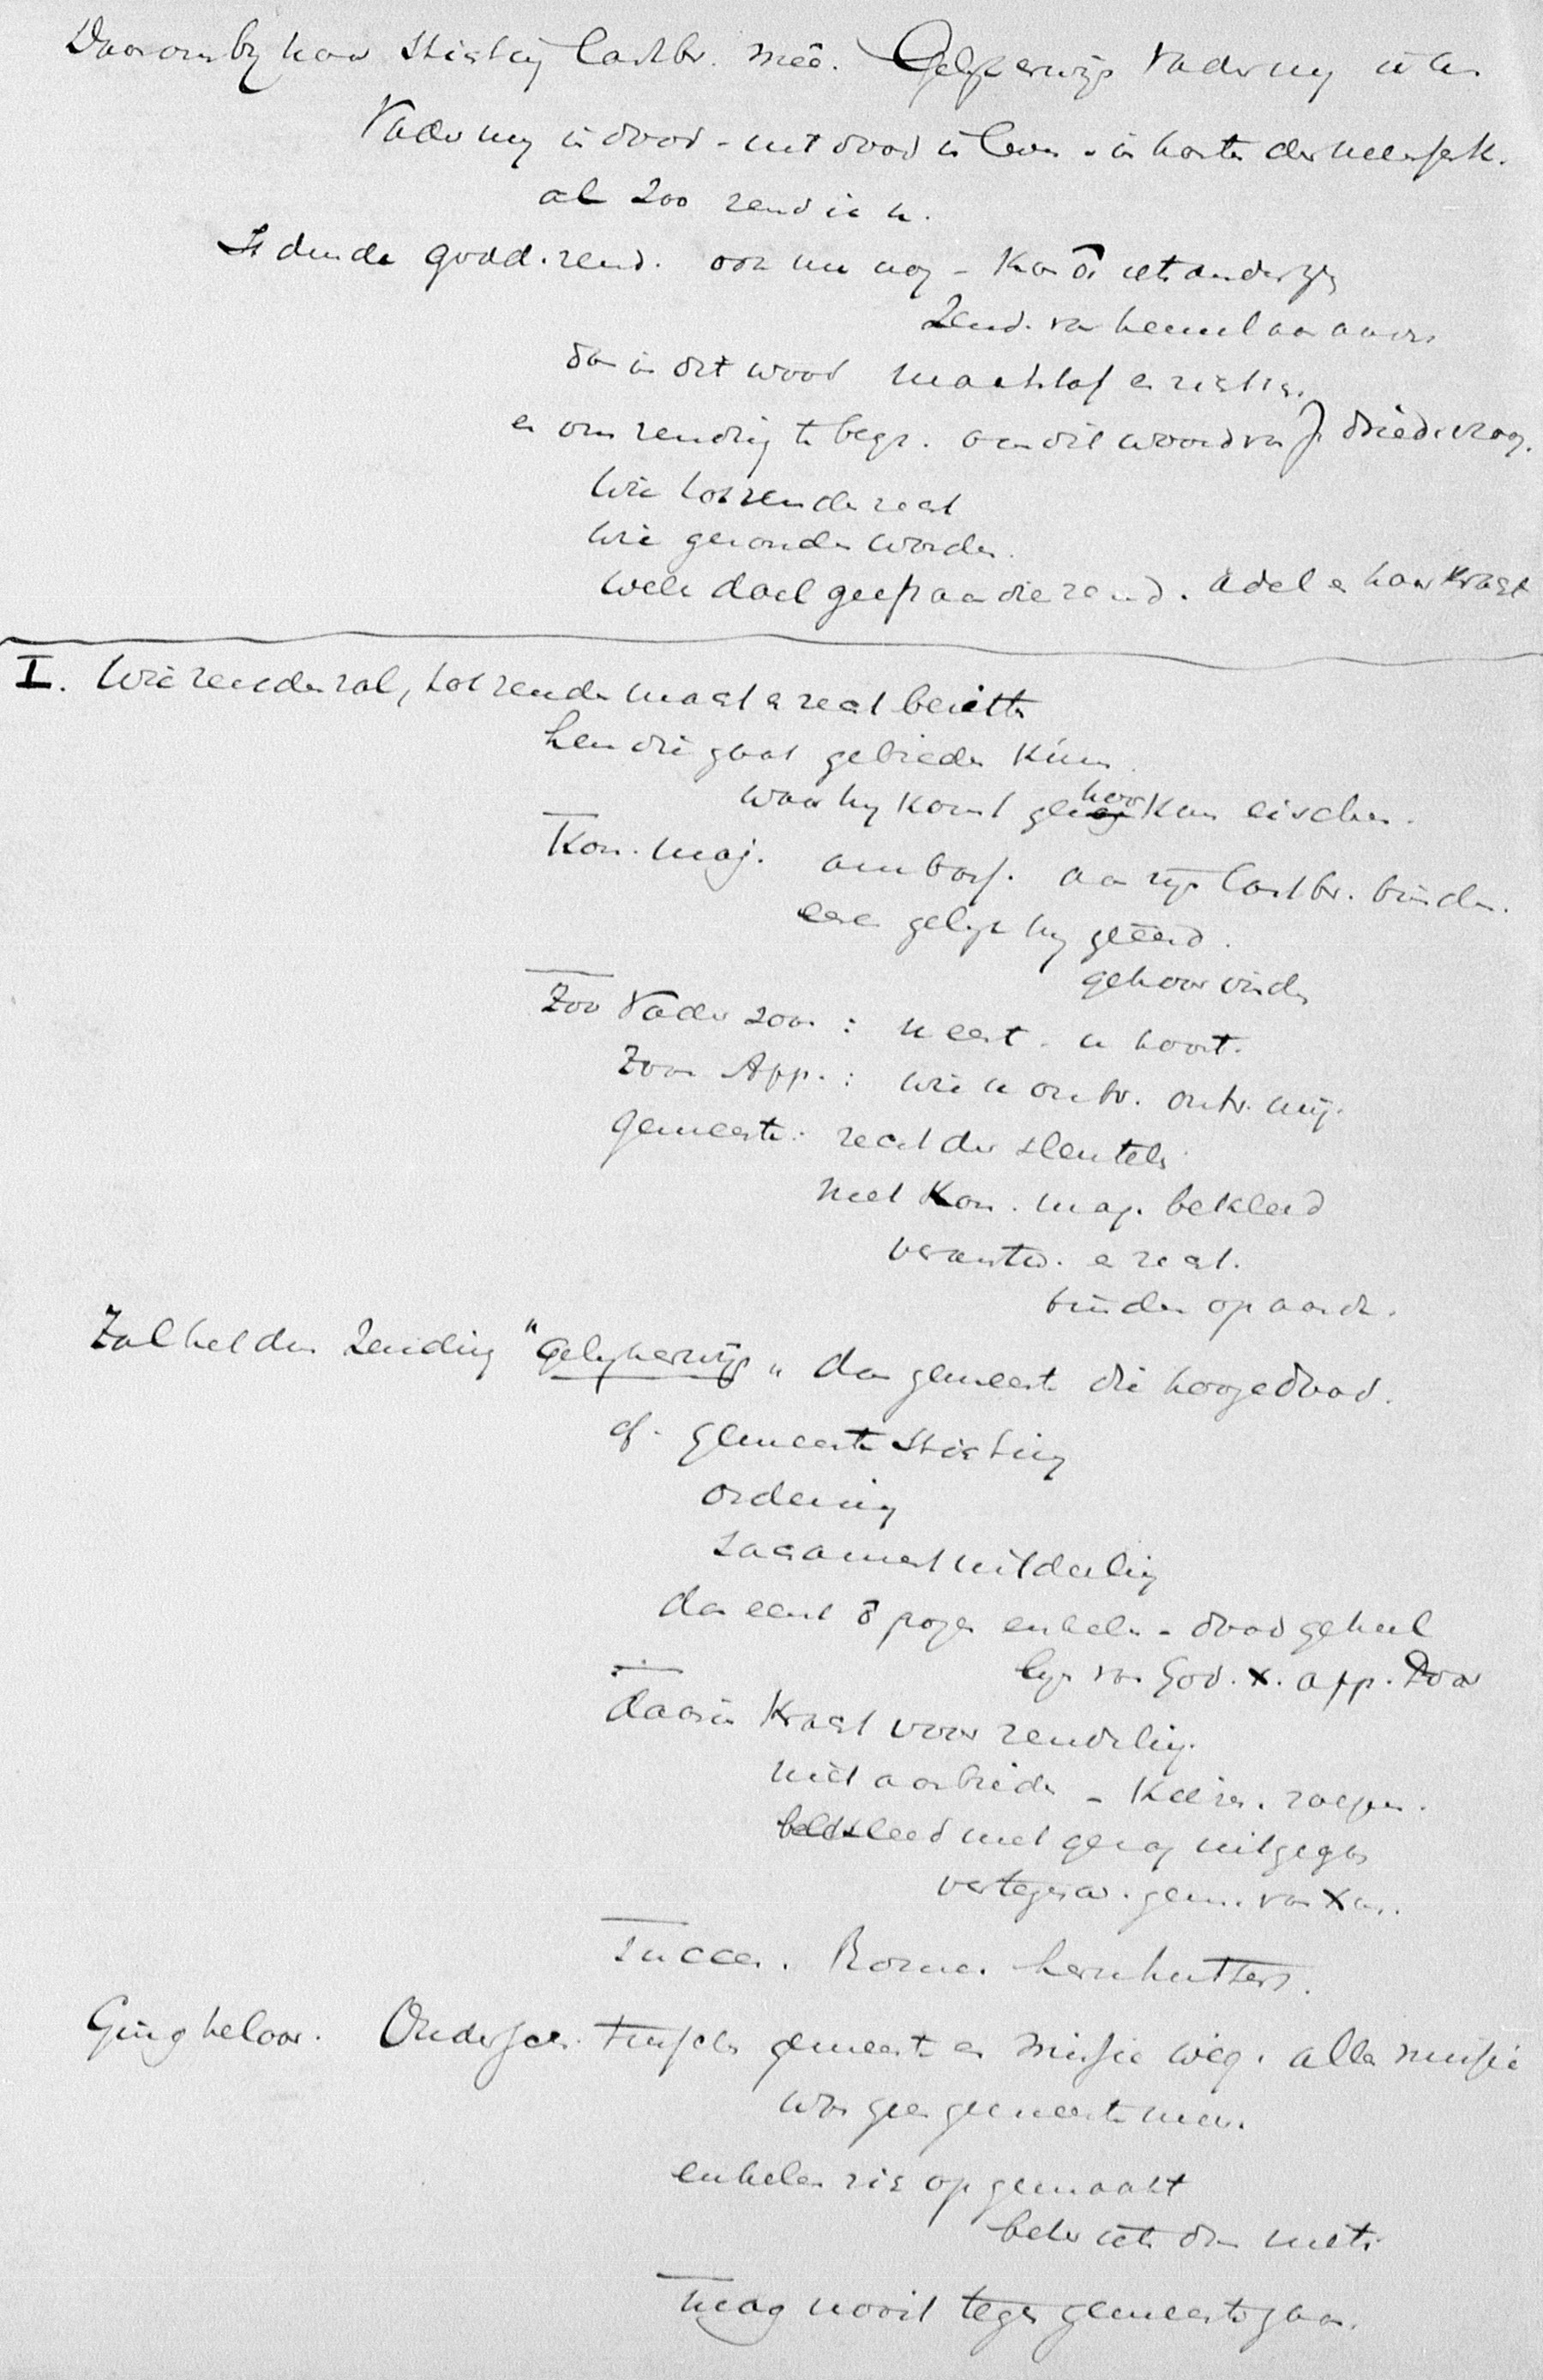 Daarom bij haar stichtig lastbr. meê. Gelijkerwijs Vader mij
Vader mij in dood - uit dood in leven - in harte der
al zoo zend ik u.
Is dus de godd. zend. ook nu nog - Kan
Zend. van hemel aan aarde
dan in dit woord maatstaf en richts.
en om zending te begr. aan dit woord van J. driedevraag.
wie tot zenden recht
wie gezonden worden.
welk doel geeft aan die zend. adel en haar kracht
I. Wie zenden zal, tot zenden macht en recht bezitten
hen die gaat gebieden kunn.
waar hij komt gehoor kan eischen.
Kon. maj. ambass. aan zijn lastbr. binden.
eeren gelijk hij geëerd.
gehoor vinden
Zoo Vader zoon : u eert. u hoort.
Zoon App. : wie u ontv. ontv. mij.
gemeente: recht der sleutels
met Kon. maj. bekleed
verantw. en recht.
binden op aarde.
Zal het dan zending "gelijkerwijs" dan gemeente die hooge daad.
cf. gemeente stichting
ordening
sacrament uitdeeling
dan eerst poger enkelen - daad geheel
lijn van God. X. app. Door
daarin kracht voor zendeling.
niet aanbieden - Keizer. roepen.
bekleed met gezag uitgegaan
vertegenw. gem. van Xus.
succes. Rome. hernhutters.
Ging teloor. Onderscheid tusschen gemeente en missie weg. alle missie
was geen gemeente meer.
enkelen zich opgemaakt
beter iets dan niets
mag nooit tegen gemeente gaan.